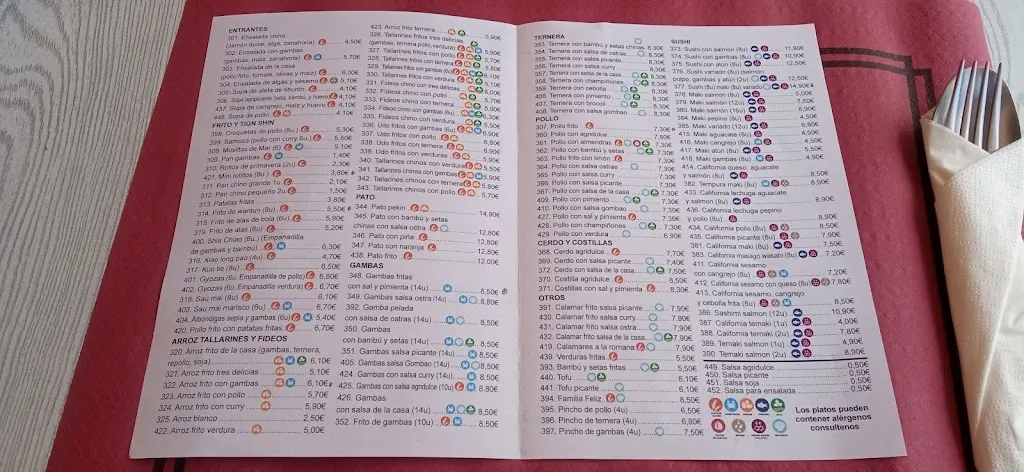 ENTRANTES
301. Ensalada china
(Jamón dulce, alge, zanahoria) 4,50€
302. Ensalada con gambas
(gambas, maiz, zanahoria) 5,70€
303. Ensalada de la casa
(pollo frito, tomate, olivas y maiz) 6,00€
304. Ensalada de algas y sésamo 5,10€
305. Sopa de aleta de tiburón 4,10€
306. Sopa agripicante (seta, bambú y huevo) 4,10€
437. Sopa de cangrejo, maiz y huevo 4,10€
448. Sopa de pollo 4,10€
FRITO Y TIGN SHIN
398. Croquetas de pollo (8u.) 5,30€
399. Samosa (pollo y curry 8u.) 5,50€
308. Muslitos de Mar (6) 5,10€
309. Pan gambas 1,40€
310. Rollos de primavera (2u) 2,30€
421. Mini rollitos (8u) 3,80€
311. Pan chino grande 1u 2,10€
312. Pan chino pequeño 2u 1,50€
313. Patatas fritas 3,80€
314. Frito de wantun (8u) 5,50€
315. Frito de alas de bola (6u) 5,90€
319. Frito de alas (6u) 5,20€
400. Shia Chiao (6u.) (Empanadilla
de gambas y bambú) 6,30€
316. Xiao long pao (4u) 4,70€
317. Kuo tie (8u) 6,50€
401. Gyozas (6u. Empanadilla de pollo) 6,80€
402. Gyozas (6u. Empanadilla verdura) 6,70€
318. Sau mai (8u) 6,10€
403. Sau mai marisco (6u) 6,70€
404. Abóndigas sepia y gambas (6u) 5,40€
420. Pollo frito con patatas fritas 6,70€
ARROZ TALLARINES Y FIDEOS
320. Arroz frito de la casa (gambas, ternera,
repollo, soja) 6,10€
321. Arroz frito tres delicias 5,10€
322. Arroz frito con gambas 6,10€
323. Arroz frito con pollo 5,70€
324. Arroz frito con curry 5,90€
325. Arroz blanco 2,50€
422. Arroz frito verdura 5,00€
423. Arroz frito ternera 5,90€
326. Tallarines fritos tres delicias
(gambas, ternera, pollo, verdura) 6,30€
327. Tallarines fritos con pollo 5,70€
328. Tallarines fritos con ternera 5,90€
329. Tallarines fritos con gambas (6u)
330. Tallarines fritos con verdura 6,10€
331. Fideos chino con tres delicias
332. Fideos chino con pollo 5,70€
333. Fideos chino con ternera 5,90€
334. Fideos chino con gambas (6u) 6,30€
335. Fideos chino con verdura
336. Udo fritos con gambas (6u) 6,30€
337. Udo fritos con pollo
338. Udo fritos con ternera 5,90€
339. Udo fritos con verduras 5,90€
340. Tallarines chinos con verdura 5,50€
341. Tallarines chinos con gambas 5,90€
342. Tallarines chinos con ternera 5,80€
343. Tallarines chinos con pollo 5,70€
PATO
344. Pato pekin 14,90€
345. Pato con bambú y setas
chinas con salsa ostra 12,80€
346. Pato con piña 12,80€
347. Pato con naranja 12,80€
438. Pato frito 12,00€
GAMBAS
348. Gambas fritas
con sal y pimienta (14u) 8,50€
349. Gambas salsa ostra (14u) 8,80€
392. Gamba pelada
con salsa de ostras (14u) 8,50€
350. Gambas
con bambú y setas (14u) 8,50€
351. Gambas salsa picante (14u) 8,50€
405. Gambas salsa Gombao (14u) 8,50€
424. Gambas con salsa curry (14u) 8,50€
425. Gambas con salsa agridulce (10u) 8,80€
426. Gambas
con salsa de la casa (14u) 8,50€
352. Frito de gambas (10u) 8,50€
TERNERA
353. Ternera con bambú y setas chinas 8,30€
354. Ternera con salsa de ostras 8,30€
355. Ternera con salsa picante 8,30€
356. Ternera con salsa curry 8,30€
357. Ternera con salsa de la casa 8,30€
358. Ternera con champiñones 8,30€
359. Ternera con cebolla 8,30€
406. Ternera con pimiento 8,30€
407. Ternera con brocoli 8,30€
408. Ternera con salsa gombao 8,30€
POLLO
307. Pollo frito 7,30€
360. Pollo con agridulce 7,30€
361. Pollo con almendras 7,30€
362. Pollo con bambú y setas 7,30€
363. Pollo frito con limón 7,30€
364. Pollo con salsa ostras 7,30€
365. Pollo con salsa curry 7,30€
366. Pollo con salsa picante 7,30€
367. Pollo con salsa de la casa 7,30€
409. Pollo con pimiento 7,30€
410. Pollo con salsa gombao 7,30€
427. Pollo con sal y pimienta 7,30€
428. Pollo con champiñones 7,30€
429. Pollo con verdura 6,90€
CERDO Y COSTILLAS
368. Cerdo agridulce 7,70€
369. Cerdo con salsa picante 7,40€
372. Cerdo con salsa de la casa 7,50€
370. Costilla agridulce 8,50€
371. Costillas con sal y pimienta 8,30€
OTROS
391. Calamar frito salsa picante 7,90€
430. Calamar frito salsa curry 7,90€
431. Calamar frito salsa ostra 7,90€
432. Calamar frito salsa de la casa 7,90€
419. Calamares a la romana 7,90€
439. Verduras fritas 5,50€
393. Bambú y setas fritas 6,50€
440. Tofu 6,10€
441. Tofu picante 6,10€
394. Familia Feliz 8,50€
395. Pincho de pollo (4u) 6,50€
396. Pincho de ternera (4u) 6,80€
397. Pincho de gambas (4u) 7,50€
SUSHI
373. Sushi con salmón (8u) 11,90€
374. Sushi con gambas (8u) 10,90€
375. Sushi con atún (8u) 12,50€
376. Sushi variado (8u) (salmón
pulpo, gambas y atún (2u) 12,50€
377. Sushi (8u) maki (8u) variado 14,90€
378. Maki salmón (8u) 6,00€
379. Maki salmón (12u) 7,50€
380. Maki salmón (16u) 8,90€
384. Maki pepino (8u) 4,50€
385. Maki variado (12u) 6,80€
415. Maki aguacate (8u) 4,50€
416. Maki cangrejo (8u) 4,50€
417. Maki atún (8u) 5,50€
418. Maki gambas (8u) 4,90€
414. California queso, aguacate
y salmón (8u) 8,50€
382. Tempura maki (8u) 8,90€
433. California lechuga aguacate
y salmon (8u)
436. California lechuga pepino
y pollo (8u) 8,90€
434. California pollo (8u) 8,50€
435. California picante (8u) 7,90€
381. California maki (8u) 7,50€
383. California masago wasabi (8u) 7,20€
411. California sesamo
con cangrejo (8u) 7,20€
412. California sesamo con queso (8u) 7,80€
413. California sesamo, cangrejo
y cebolla frita (8u) 8,50€
386. Sashimi salmon (12u) 10,90€
387. California temaki (1u) 4,00€
388. California temaki (2u) 7,80€
389. Temaki salmon (1u) 4,90€
390. Temaki salmon (2u) 8,90€
449. Salsa agridulce 0,50€
450. Salsa picante 0,50€
451. Salsa soja 0,50€
452. Salsa para ensalada 0,50€
Los platos pueden
contener alérgenos
consultenos